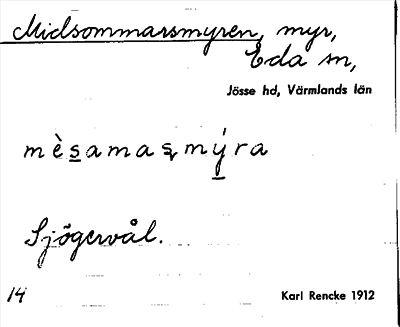 Midsommarsmyren, myr,
Eda sn,
Jösse hd, Värmlands län
mèsamasmýra
Sjögervål.
14
Karl Rencke 1912